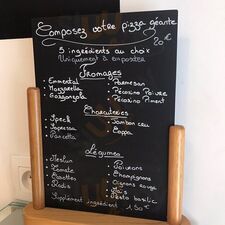 Composez votre pizza géante
20€
5 ingrédients au choix
Uniquement à emporter
Fromages
• Emmental
• Mozzarella
• Gorgonzola
• Parmesan
• Pecorino Poivre
• Pecorino Piment
Charcuteries
• Speck
• Spianata
• Pancetta
• Jambon cru
• Coppa
Légumes
• Mesclun
• Tomate
• Radis
• Poivrons
• Champignons
• Oignons rouge
• Maïs
• Pesto basilic
Supplément ingrédient 1,50€